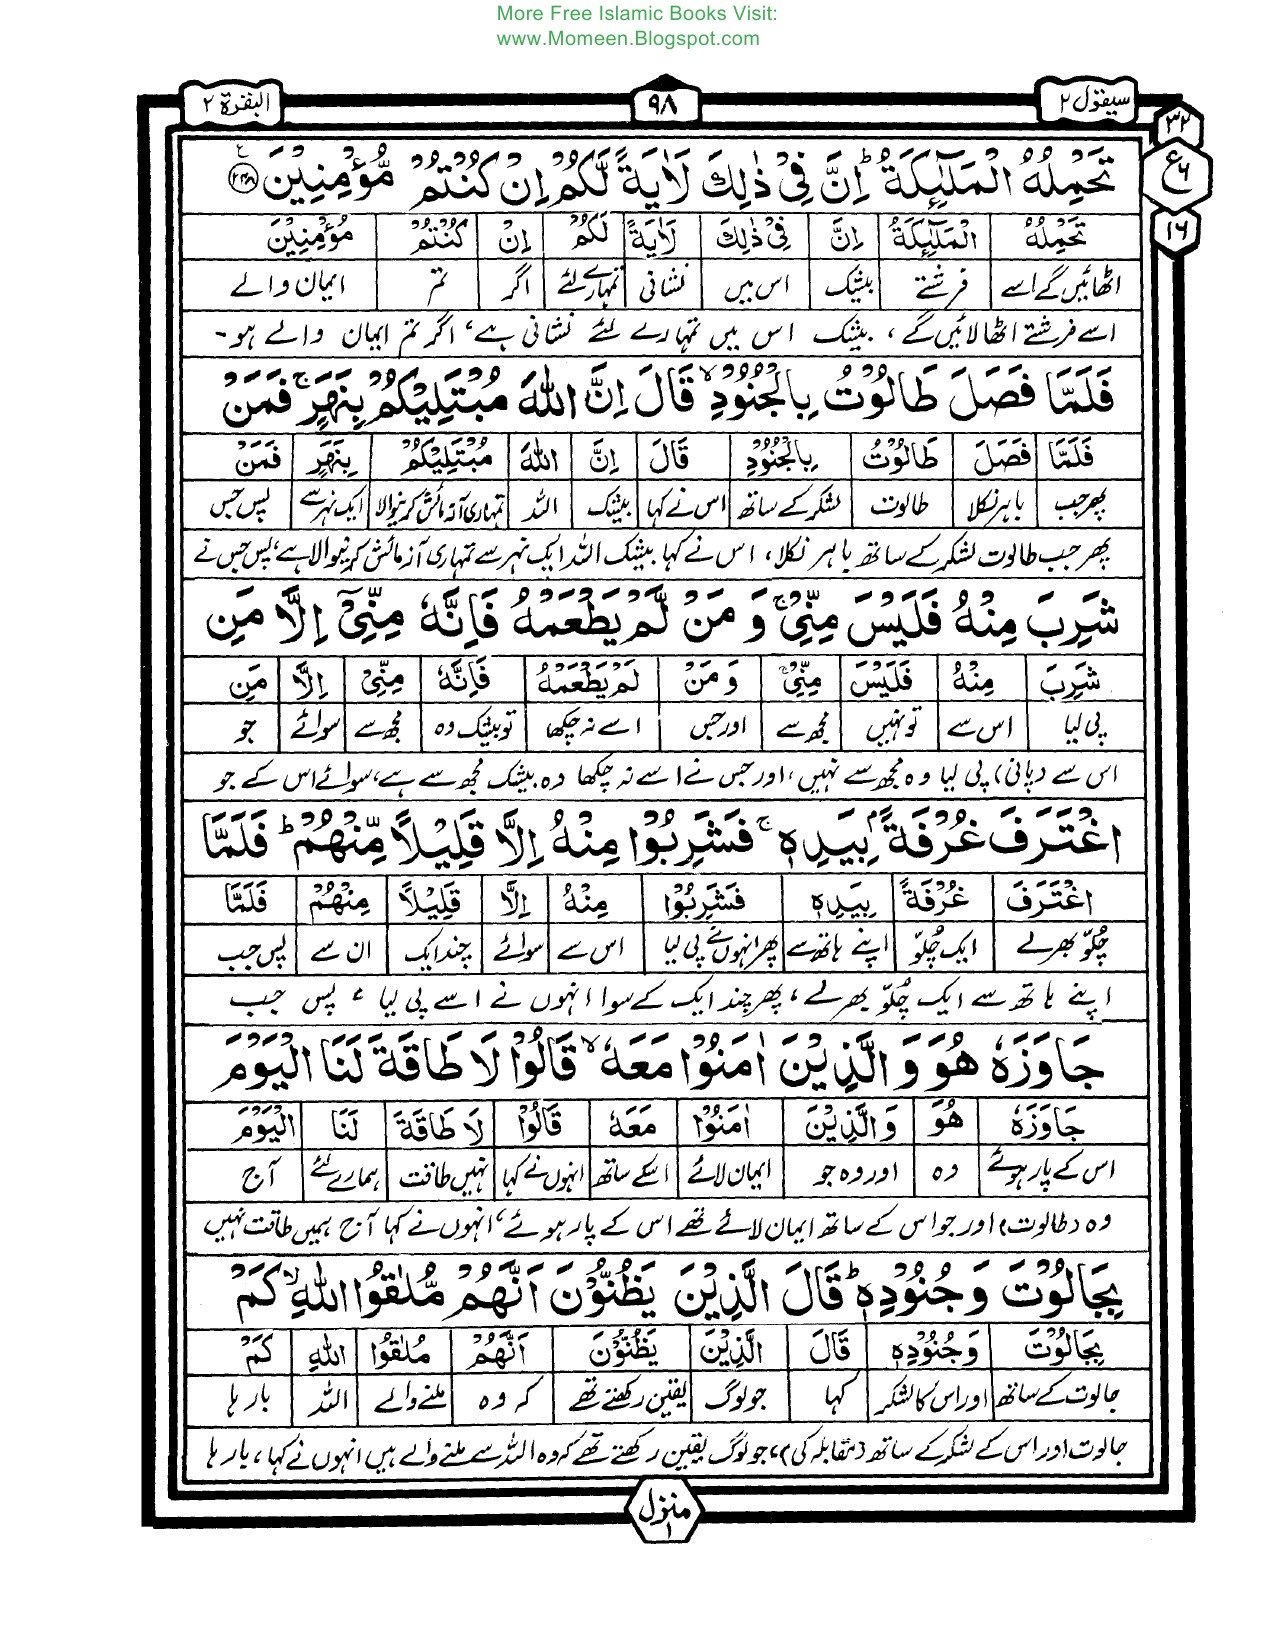 More Free Islamic Books Visit:
www.Momeen.Blogspot.com
سیقول ۲ ۹۸ البقرة ۲
۳۲
ع ۶
۱۶
تَحْمِلُهُ الْمَلٰٓئِكَةُ ؕ اِنَّ فِیْ ذٰلِكَ لَاٰیَةً لَّكُمْ اِنْ كُنْتُمْ مُّؤْمِنِیْنَ ﴿۲۴۸﴾ ع
تَحْمِلُهُ الْمَلٰٓئِكَةُ اِنَّ فِیْ ذٰلِكَ لَاٰیَةً لَكُمْ اِنْ كُنْتُمْ مُؤْمِنِیْنَ
اٹھائیں گے اسے فرشتے بیشک اس میں نشانی تمہارے لئے اگر تم ایمان والے
اسے فرشتے اٹھا لائیں گے ، بیشک اس میں تمہارے لئے نشانی ہے ، اگر تم ایمان والے ہو -
فَلَمَّا فَصَلَ طَالُوْتُ بِالْجُنُوْدِ ۙ قَالَ اِنَّ اللّٰهَ مُبْتَلِیْكُمْ بِنَهَرٍ ۚ فَمَنْ
فَلَمَّا فَصَلَ طَالُوْتُ بِالْجُنُوْدِ قَالَ اِنَّ اللّٰهَ مُبْتَلِیْكُمْ بِنَهَرٍ فَمَنْ
پھر جب باہر نکلا طالوت لشکر کے ساتھ اس نے کہا بیشک اللہ تمہاری آزمائش کرنیوالا ایک نہر سے پس جس
پھر جب طالوت لشکر کے ساتھ باہر نکلا ، اس نے کہا بیشک اللہ ایک نہر سے تمہاری آزمائش کرنیوالا ہے ، پس جس نے
شَرِبَ مِنْهُ فَلَیْسَ مِنِّیْ ۚ وَ مَنْ لَّمْ یَطْعَمْهُ فَاِنَّهٗ مِنِّیْۤ اِلَّا مَنِ
شَرِبَ مِنْهُ فَلَیْسَ مِنِّیْ وَ مَنْ لَمْ یَطْعَمْهُ فَاِنَّهٗ مِنِّیْ اِلَّا مَنِ
پی لیا اس سے تو نہیں مجھ سے اور جس اسے نہ چکھا تو بیشک وہ مجھ سے سوائے جو
اس سے (پانی) پی لیا وہ مجھ سے نہیں ، اور جس نے اسے نہ چکھا وہ بیشک مجھ سے ہے ، سوائے اس کے جو
اغْتَرَفَ غُرْفَةًۢ بِیَدِهٖ ۚ فَشَرِبُوْا مِنْهُ اِلَّا قَلِیْلًا مِّنْهُمْ ؕ فَلَمَّا
اغْتَرَفَ غُرْفَةً بِیَدِهٖ فَشَرِبُوْا مِنْهُ اِلَّا قَلِیْلًا مِنْهُمْ فَلَمَّا
چُلّو بھرلے ایک چُلّو اپنے ہاتھ سے پھر انہوں نے پی لیا اس سے سوائے چند ایک ان سے پس جب
اپنے ہاتھ سے ایک چُلّو بھرلے ، پھر چند ایک کے سوا انہوں نے اسے پی لیا ، پس جب
جَاوَزَهٗ هُوَ وَ الَّذِیْنَ اٰمَنُوْا مَعَهٗ ۙ قَالُوْا لَا طَاقَةَ لَنَا الْیَوْمَ
جَاوَزَهٗ هُوَ وَ الَّذِیْنَ اٰمَنُوْا مَعَهٗ قَالُوْا لَا طَاقَةَ لَنَا الْیَوْمَ
اس کے پار ہوئے وہ اور وہ جو ایمان لائے اسکے ساتھ انہوں نے کہا نہیں طاقت ہمارے لئے آج
وہ (طالوت) اور جو اس کے ساتھ ایمان لائے تھے اس کے پار ہوئے ، انہوں نے کہا آج ہمیں طاقت نہیں
بِجَالُوْتَ وَ جُنُوْدِهٖ ؕ قَالَ الَّذِیْنَ یَظُنُّوْنَ اَنَّهُمْ مُّلٰقُوا اللّٰهِ ۙ كَمْ
بِجَالُوْتَ وَ جُنُوْدِهٖ قَالَ الَّذِیْنَ یَظُنُّوْنَ اَنَّهُمْ مُلٰقُوا اللّٰهِ كَمْ
جالوت کے ساتھ اور اس کا لشکر کہا جو لوگ یقین رکھتے تھے کہ وہ ملنے والے اللہ بارہا
جالوت اور اس کے لشکر کے ساتھ (مقابلہ کی) ، جو لوگ یقین رکھتے تھے کہ وہ اللہ سے ملنے والے ہیں انہوں نے کہا ، بارہا
منزل ۱